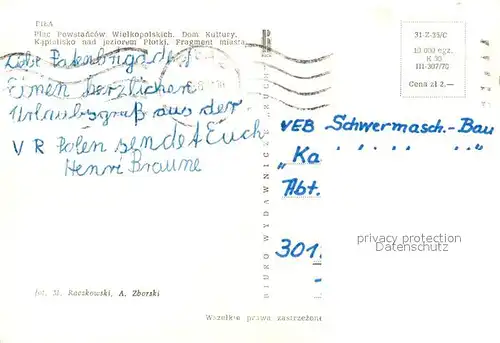 PIŁA
Plac Powstańców Wielkopolskich. Dom Kultury.
Kąpielisko nad jeziorem Płotki. Fragment miasta
Liebe
Einen herzlichen
Urlaubsgruß aus der
V R Polen sendet Euch
Henri Braune
fot. M. Raczkowski, A. Zborski
BIURO WYDAWNICZE
31-Z-35/C
K 30
III-307/70
Cena zł 2.—
VEB Schwermasch.-Bau
„Ka
Abt.
301
privacy protection
Wszelkie prawa zastrzeżone